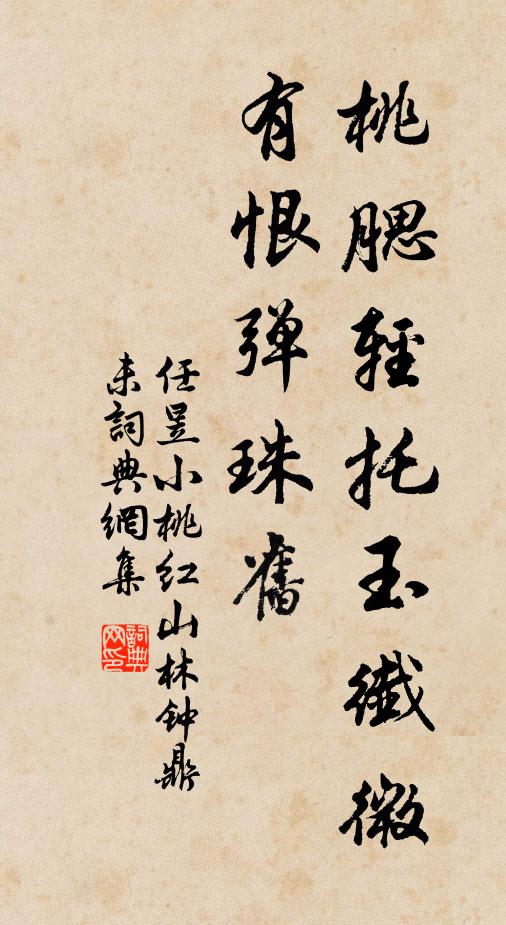 桃腮輕托玉纖微
有恨弹珠舊
任昱小桃红山林钟鼎
未詞典網集
詞典网印